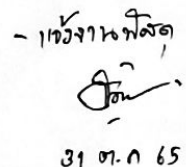 - แจ้งงานพัสดุ
31 ต.ค 65